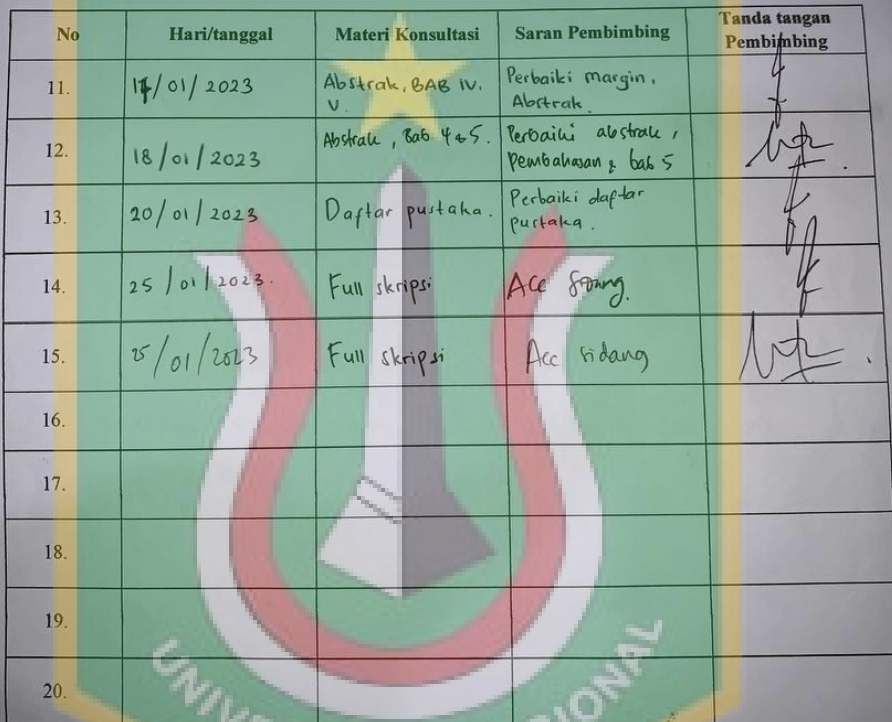 No Hari/tanggal Materi Konsultasi Saran Pembimbing Tanda tangan
Pembimbing
11. 17/01/2023 Abstrak, BAB IV. Perbaiki margin,
V. Abstrak.
12. 18/01/2023 Abstrak, Bab 4 & 5. Perbaiki abstrak,
pembahasan & bab 5
13. 20/01/2023 Daftar pustaka. Perbaiki daftar
pustaka.
14. 25/01/2023. Full skripsi Acc
15. 25/01/2023 Full skripsi Acc sidang
16.
17.
18.
19.
20.
UNIVE
IONAL